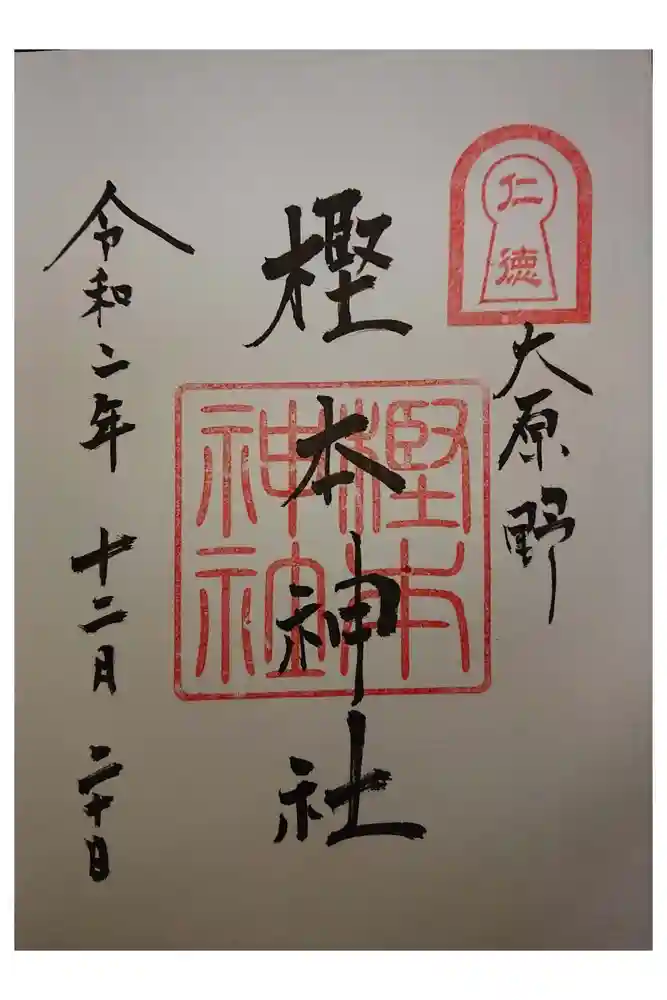 仁徳
大原野
樫本神社
樫本神社
令和二年 十二月 二十日